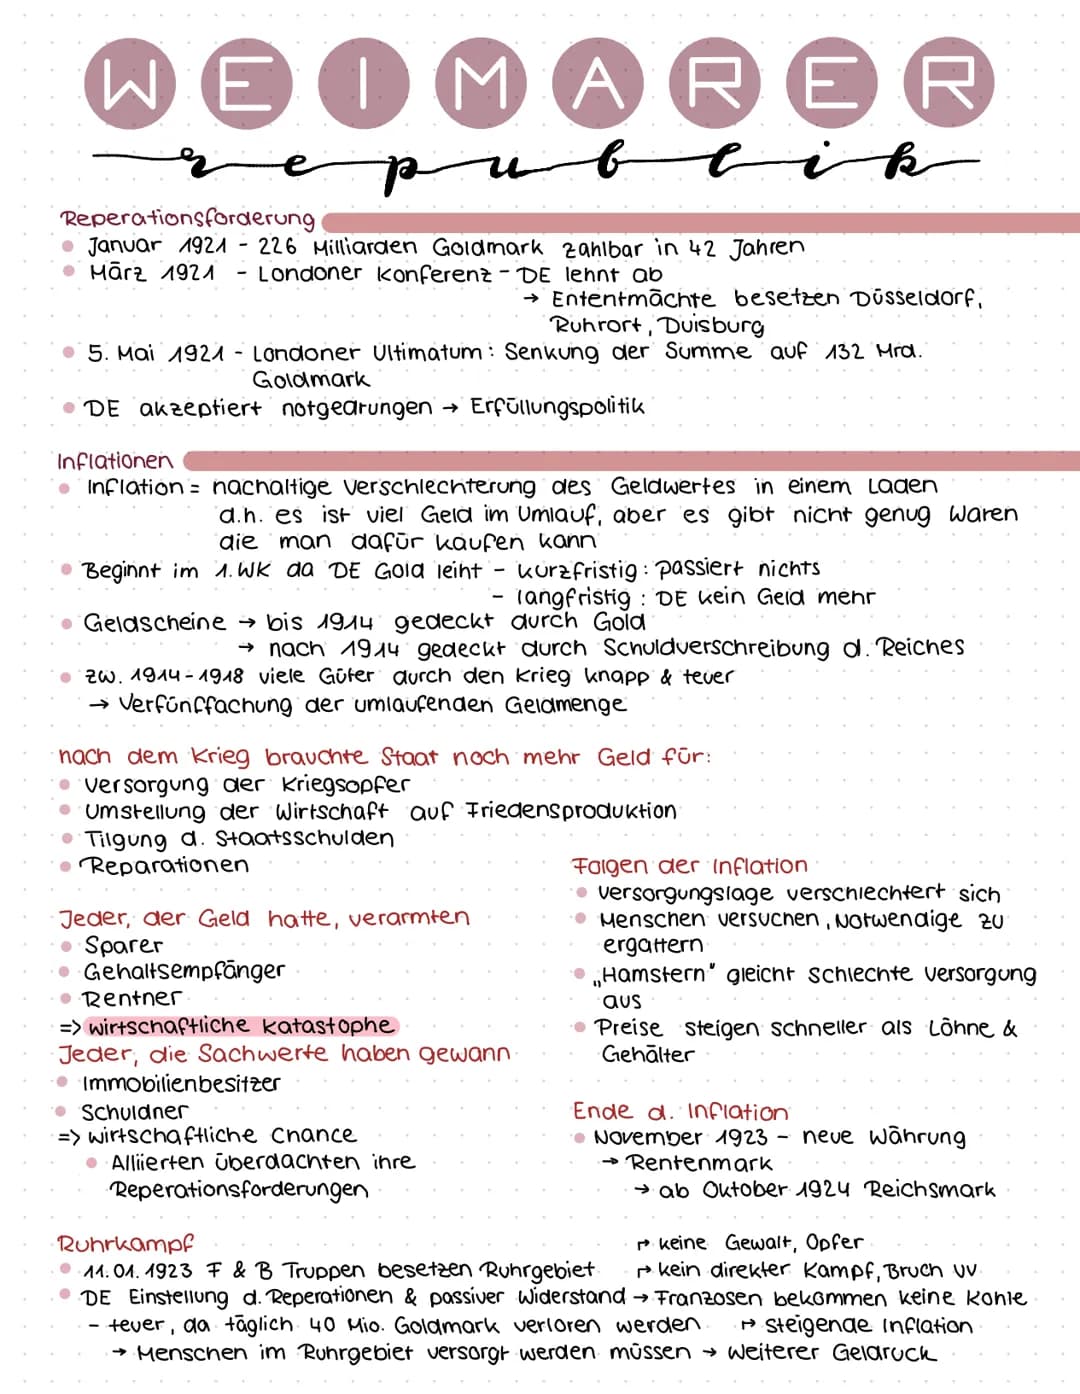 WEIMARER
republik
Reperationsforderung
• Januar 1921 - 226 Milliarden Goldmark zahlbar in 42 Jahren
• März 1921 - Londoner Konferenz - DE lehnt ab
→ Ententmächte besetzen Düsseldorf,
Ruhrort, Duisburg
• 5. Mai 1921 - Londoner Ultimatum: Senkung der Summe auf 132 Mrd.
Goldmark
• DE akzeptiert notgedrungen → Erfüllungspolitik
Inflationen
• Inflation = nachaltige Verschlechterung des Geldwertes in einem Laden
d.h. es ist viel Geld im Umlauf, aber es gibt nicht genug Waren
die man dafür kaufen kann
• Beginnt im 1. WK da DE Gold leiht - kurzfristig: passiert nichts
- langfristig: DE kein Geld mehr
• Geldscheine → bis 1914 gedeckt durch Gold
→ nach 1914 gedeckt durch Schuldverschreibung d. Reiches
• zw. 1914-1918 viele Güter durch den Krieg knapp & teuer
→ Verfünffachung der umlaufenden Geldmenge
nach dem Krieg brauchte Staat noch mehr Geld für:
• Versorgung der Kriegsopfer
• Umstellung der Wirtschaft auf Friedensproduktion
• Tilgung d. Staatsschulden
• Reparationen
Jeder, der Geld hatte, verarmten
• Sparer
• Gehaltsempfänger
• Rentner
=> wirtschaftliche Katastophe
Jeder, die Sachwerte haben gewann
• Immobilienbesitzer
• Schuldner
=> wirtschaftliche Chance
• Alliierten überdachten ihre
Reperationsforderungen
Folgen der Inflation
• Versorgungslage verschlechtert sich
• Menschen versuchen, Notwendige zu
ergattern
• „Hamstern" gleicht schlechte Versorgung
aus
• Preise steigen schneller als Löhne &
Gehälter
Ende d. Inflation
• November 1923 - neue Währung
→ Rentenmark
→ ab Oktober 1924 Reichsmark
Ruhrkampf
↱ keine Gewalt, Opfer
• 11.01.1923 F & B Truppen besetzen Ruhrgebiet ↱ kein direkter Kampf, Bruch VV
• DE Einstellung d. Reperationen & passiver Widerstand → Franzosen bekommen keine Kohle
- teuer, da täglich 40 Mio. Goldmark verloren werden ↦ steigende Inflation
→ Menschen im Ruhrgebiet versorgt werden müssen → weiterer Gelddruck